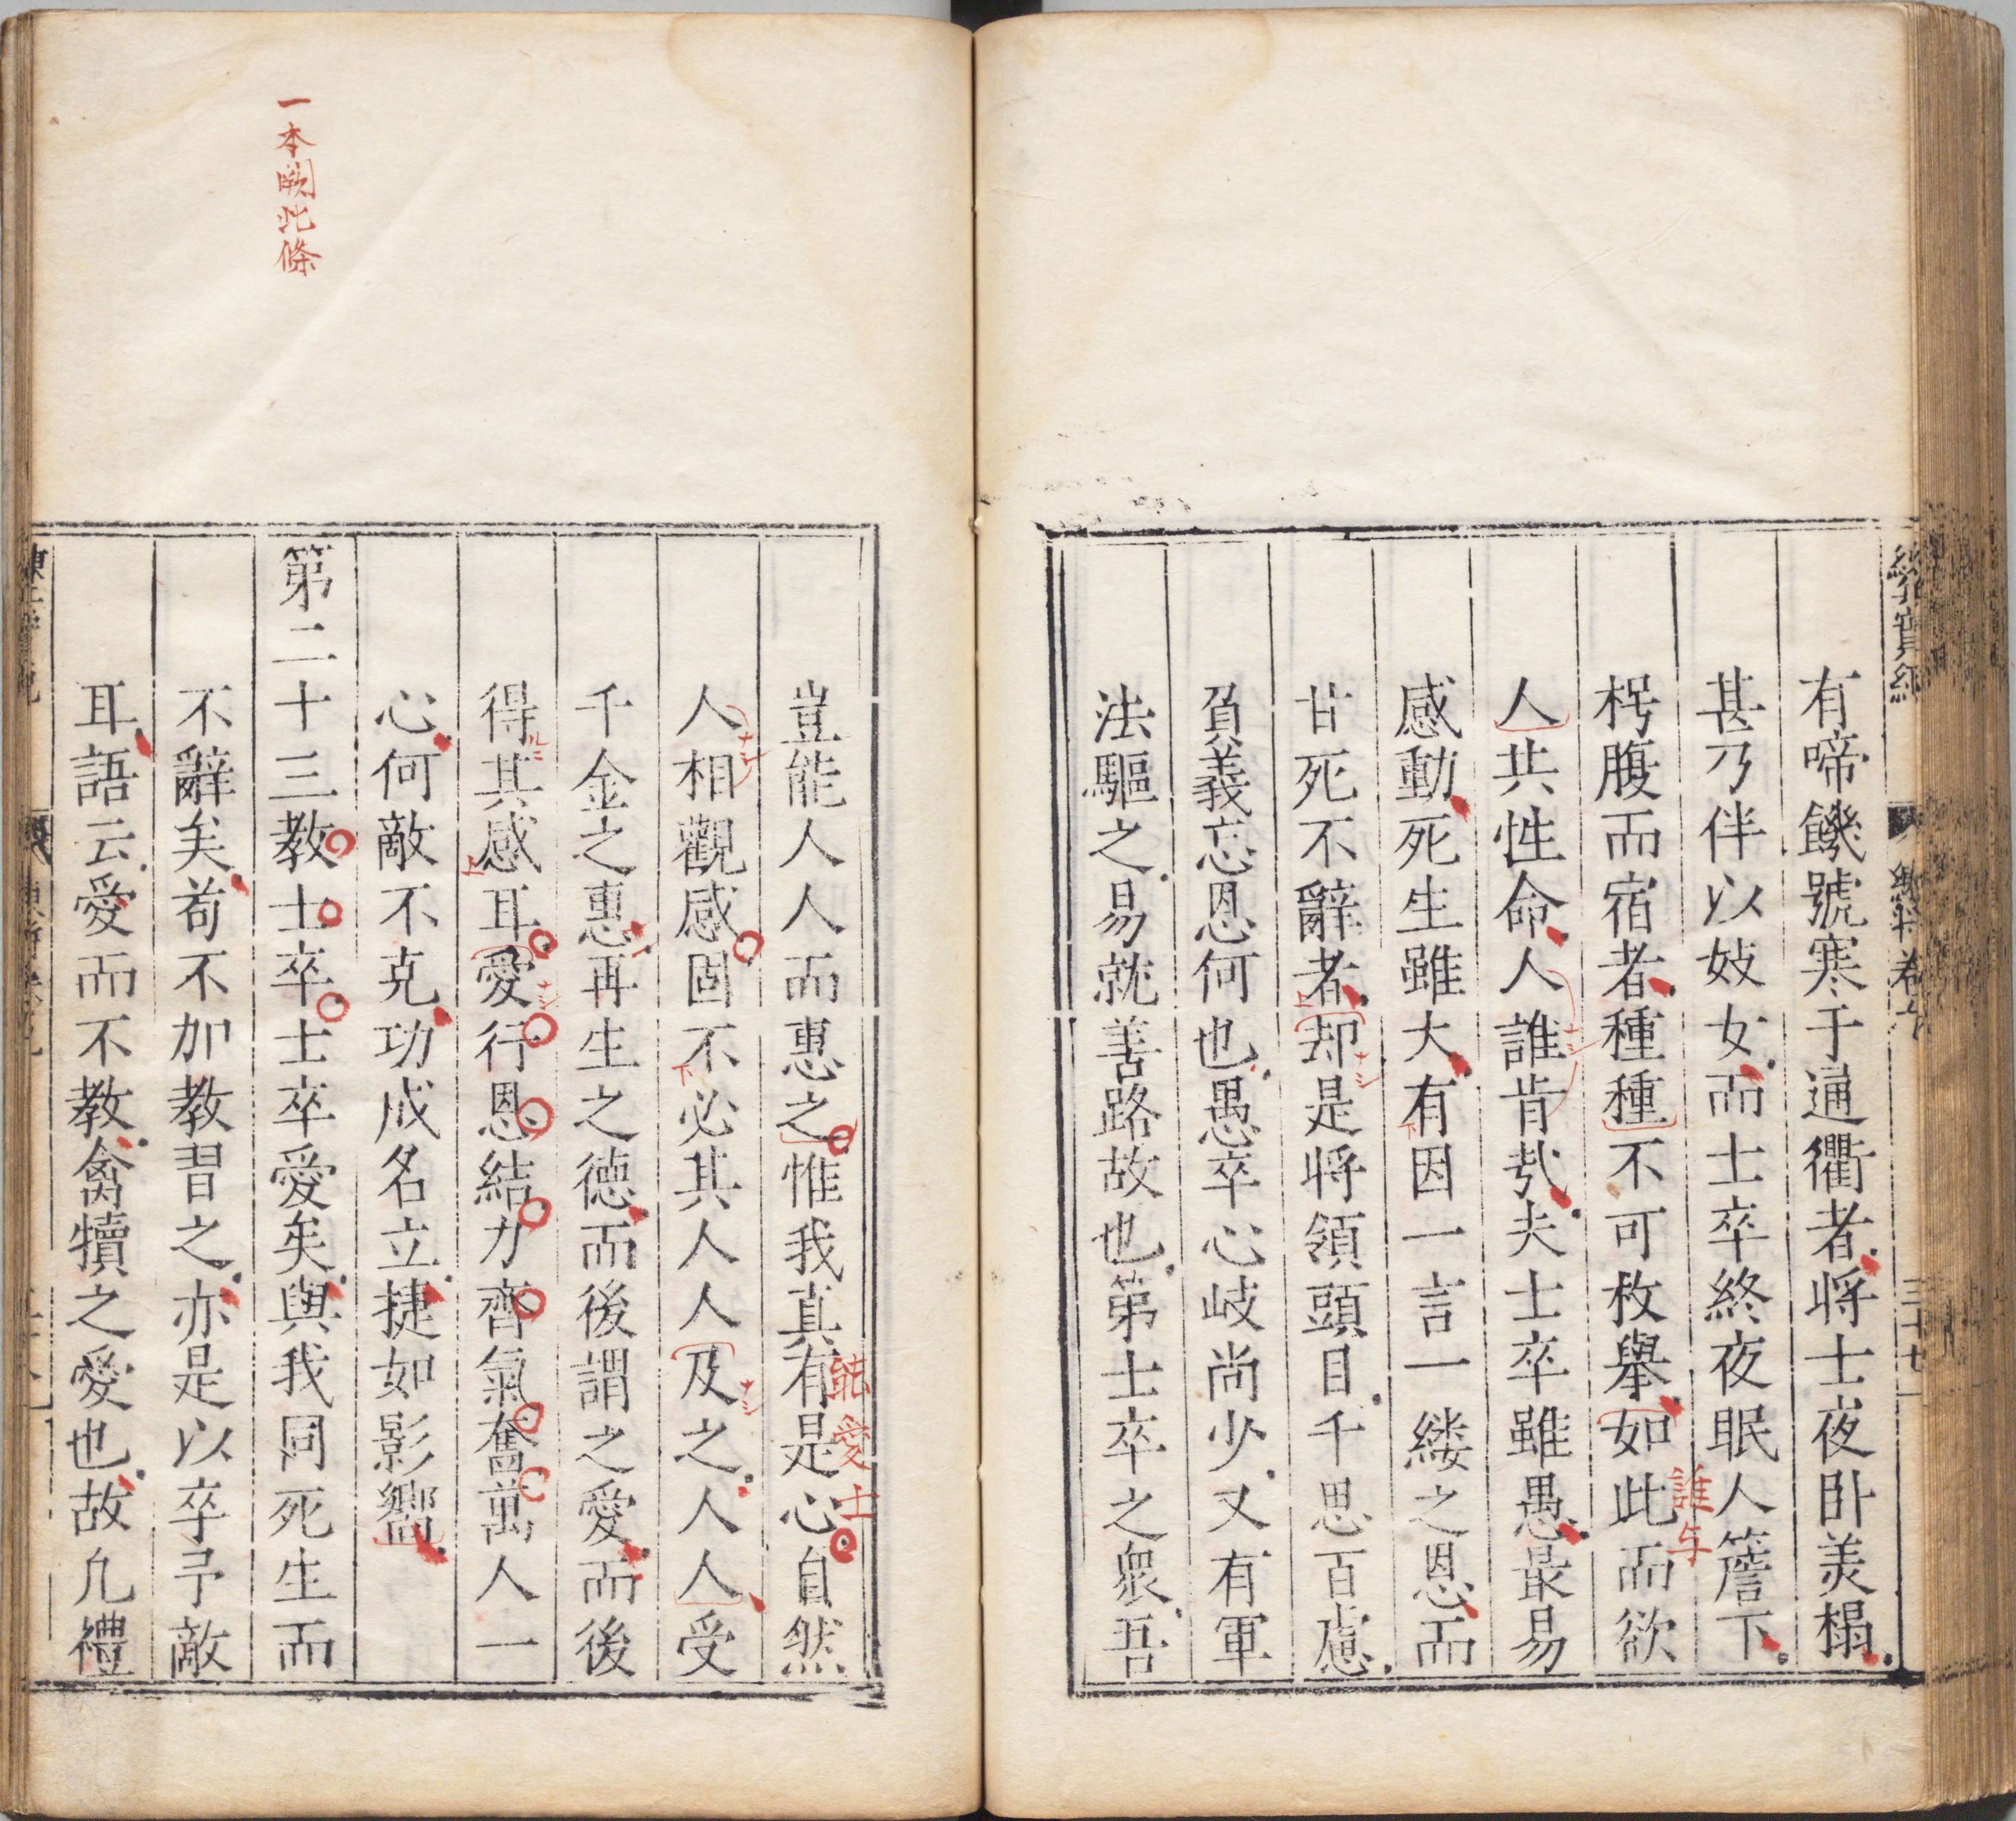 有啼饑號寒于通衢者将士夜卧美榻
甚乃伴以妓女而士卒終夜眠人簷下
枵腹而宿者種種不可枚舉如此而欲
誰与
人共性命人誰肯哉夫士卒雖愚最易
感動死生雖大有因一言一縷之恩而
甘死不辭者却是将領頭目千思百慮
負義忘恩何也愚卒心岐尚少又有軍
法驅之易就善路故也第士卒之衆吾
豈能人人而惠之惟我真有是心自然
能愛士
人相觀感固不必其人人及之人人受
千金之惠再生之德而後謂之愛而後
得其感耳愛行恩結力齊氣奮萬人一
心何敵不克功成名立捷如影響
一本闕此條
第二十三教士卒士卒愛矣與我同死生而
不辭矣苟不加教習之亦是以卒予敵
耳語云愛而不教禽犢之愛也故凢禮